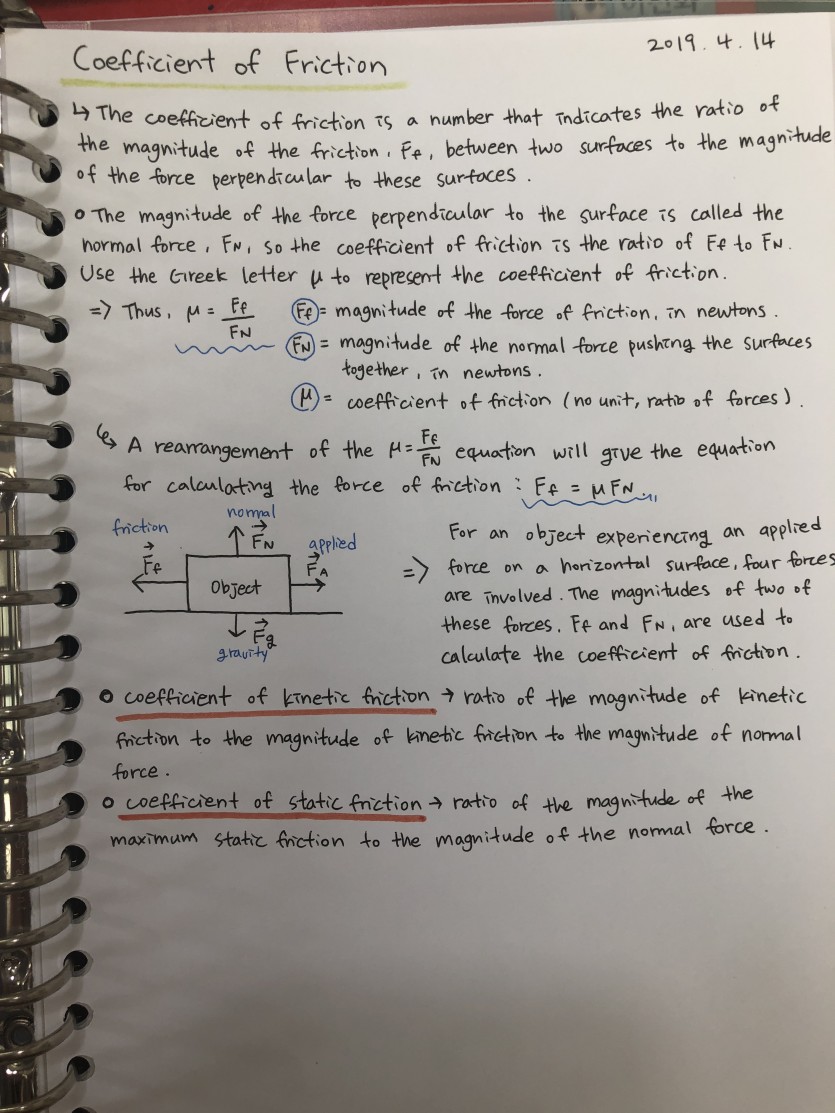 2019. 4. 14
Coefficient of Friction
↳ The coefficient of friction is a number that indicates the ratio of
the magnitude of the friction, Ff, between two surfaces to the magnitude
of the force perpendicular to these surfaces.
o The magnitude of the force perpendicular to the surface is called the
normal force, FN, so the coefficient of friction is the ratio of Ff to FN.
Use the Greek letter μ to represent the coefficient of friction.
=> Thus, μ = Ff/FN
Ff = magnitude of the force of friction, in newtons.
FN = magnitude of the normal force pushing the surfaces
together, in newtons.
μ = coefficient of friction (no unit, ratio of forces).
↳ A rearrangement of the μ = Ff/FN equation will give the equation
for calculating the force of friction : Ff = μFN.
normal
friction
FN
applied
Ff
FA
Object
Fg
gravity
For an object experiencing an applied
=> force on a horizontal surface, four forces
are involved. The magnitudes of two of
these forces, Ff and FN, are used to
calculate the coefficient of friction.
o coefficient of kinetic friction → ratio of the magnitude of kinetic
friction to the magnitude of kinetic friction to the magnitude of normal
force.
o coefficient of static friction → ratio of the magnitude of the
maximum static friction to the magnitude of the normal force.